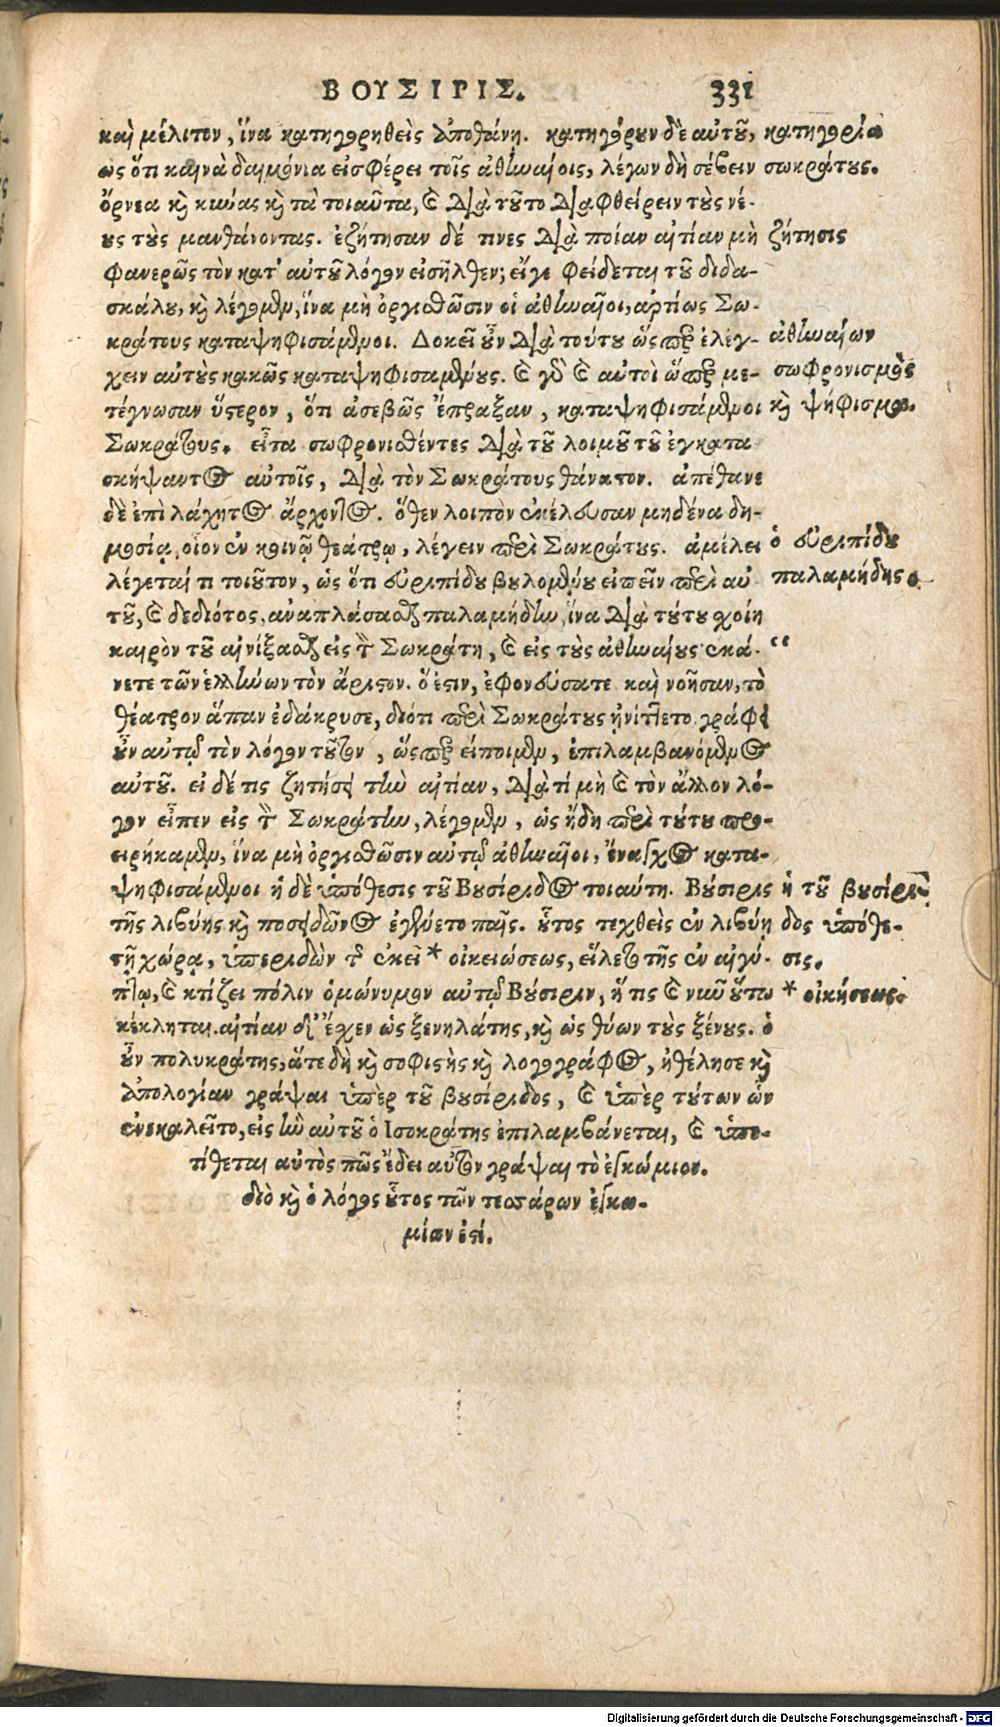 ΒΟΥΣΙΡΙΣ. 331
καὶ μέλιτον, ἵνα κατηγορηθεὶς ἀποθάνῃ. κατηγόρουν δὲ αὐτοῦ,
ὡς ὅτι καινὰ δαιμόνια εἰσφέρει τοῖς ἀθηναίοις, λέγων δὴ σέβειν
ὄρνεα καὶ κύνας καὶ τὰ τοιαῦτα, καὶ διὰ τοῦτο διαφθείρειν τοὺς νέ-
ους τοὺς μανθάνοντας. ἐζήτησαν δέ τινες διὰ ποίαν αἰτίαν μὴ
φανερῶς τὸν κατ' αὐτοῦ λόγον εἰσῆλθεν; εἴγε φείδεται τοῦ διδα-
σκάλου, καὶ λέγομεν, ἵνα μὴ ὀργισθῶσιν οἱ ἀθηναῖοι, ἀρτίως Σω-
κράτους καταψηφισάμενοι. Δοκεῖ οὖν διὰ τούτου ὥσπερ ἐλέγ-
χειν αὐτοὺς κακῶς καταψηφισαμένους. καὶ γὰρ καὶ αὐτοὶ ὥσπερ με-
τέγνωσαν ὕστερον, ὅτι ἀσεβῶς ἔπραξαν, καταψηφισάμενοι
Σωκράτους. εἶτα σωφρονισθέντες διὰ τοῦ λοιμοῦ τοῦ ἐγκατα
σκήψαντος αὐτοῖς, διὰ τὸν Σωκράτους θάνατον. ἀπέθανε
δὲ ἐπὶ λάχητος ἄρχοντος. ὅθεν λοιπὸν ἐκέλευσαν μηδένα δη-
μοσίᾳ, οἷον ἐν κοινῷ θεάτρῳ, λέγειν περὶ Σωκράτους. ἀμέλει
λέγεταί τι τοιοῦτον, ὡς ὅτι εὐριπίδου βουλομένου εἰπεῖν περὶ αὐ
τοῦ, καὶ δεδιότος, ἀναπλάσασθαι παλαμήδην, ἵνα διὰ τούτου σχοίη
καιρὸν τοῦ αἰνίξασθαι εἰς τὸν Σωκράτη, καὶ εἰς τοὺς ἀθηναίους ἐκά-
νετε τῶν ἑλλήνων τὸν ἄριστον. ὅ ἐστιν, ἐφονεύσατε καὶ νοῆσαν, τὸ
θέατρον ἅπαν ἐδάκρυσε, διότι περὶ Σωκράτους ᾐνίττετο. γράφει
οὖν αὐτῷ τὸν λόγον τοῦτον, ὥσπερ εἴποιμεν, ἐπιλαμβανόμενος
αὐτοῦ. εἰ δέ τις ζητήσει τὴν αἰτίαν, διὰ τί μὴ καὶ τὸν ἄλλον λό-
γον εἶπεν εἰς τὸν Σωκράτην, λέγομεν, ὡς ἤδη περὶ τούτου προ-
ειρήκαμεν, ἵνα μὴ ὀργισθῶσιν αὐτῷ ἀθηναῖοι, ἔναγχος κατα-
ψηφισάμενοι ἡ δὲ ὑπόθεσις τοῦ Βουσίριδος τοιαύτη. Βούσιρις
τῆς λιβύης καὶ ποσειδῶνος ἐγένετο παῖς. οὗτος τεχθεὶς ἐν λιβύῃ
τῇ χώρᾳ, ὑπεριδὼν τῆς ἐκεῖ * οἰκειώσεως, εἵλετο τῆς ἐν αἰγύ-
πτῳ, καὶ κτίζει πόλιν ὁμώνυμον αὐτῷ Βούσιριν, ἥ τις καὶ νῦν οὕτω
κέκληται. αἰτίαν δ' ἔχεν ὡς ξενηλάτης, καὶ ὡς θύων τοὺς ξένους. ὁ
οὖν πολυκράτης, ἅτε δὴ καὶ σοφιστὴς καὶ λογογράφος, ἠθέλησε καὶ
ἀπολογίαν γράψαι ὑπὲρ τοῦ βουσίριδος, καὶ ὑπὲρ τούτων ὧν
ἐνεκαλεῖτο, εἰς ἣν αὐτοῦ ὁ Ισοκράτης ἐπιλαμβάνεται, καὶ ὑπο-
τίθεται αὐτὸς πῶς ἔδει αὐτὸν γράψαι τὸ ἐγκώμιον.
διὸ καὶ ὁ λόγος οὗτος τῶν τεσσάρων ἐγκω-
μίων ἐστί.
κατηγορία
σωκράτους.
ζήτησις
ἀθηναίων
σωφρονισμὸς
καὶ ψήφισμα.
ὁ εὐριπίδου
παλαμήδης.
“
ἡ τοῦ βουσίρι-
δος ὑπόθε-
σις.
* οἰκήσεως.
Digitalisierung gefördert durch die Deutsche Forschungsgemeinschaft - DFG